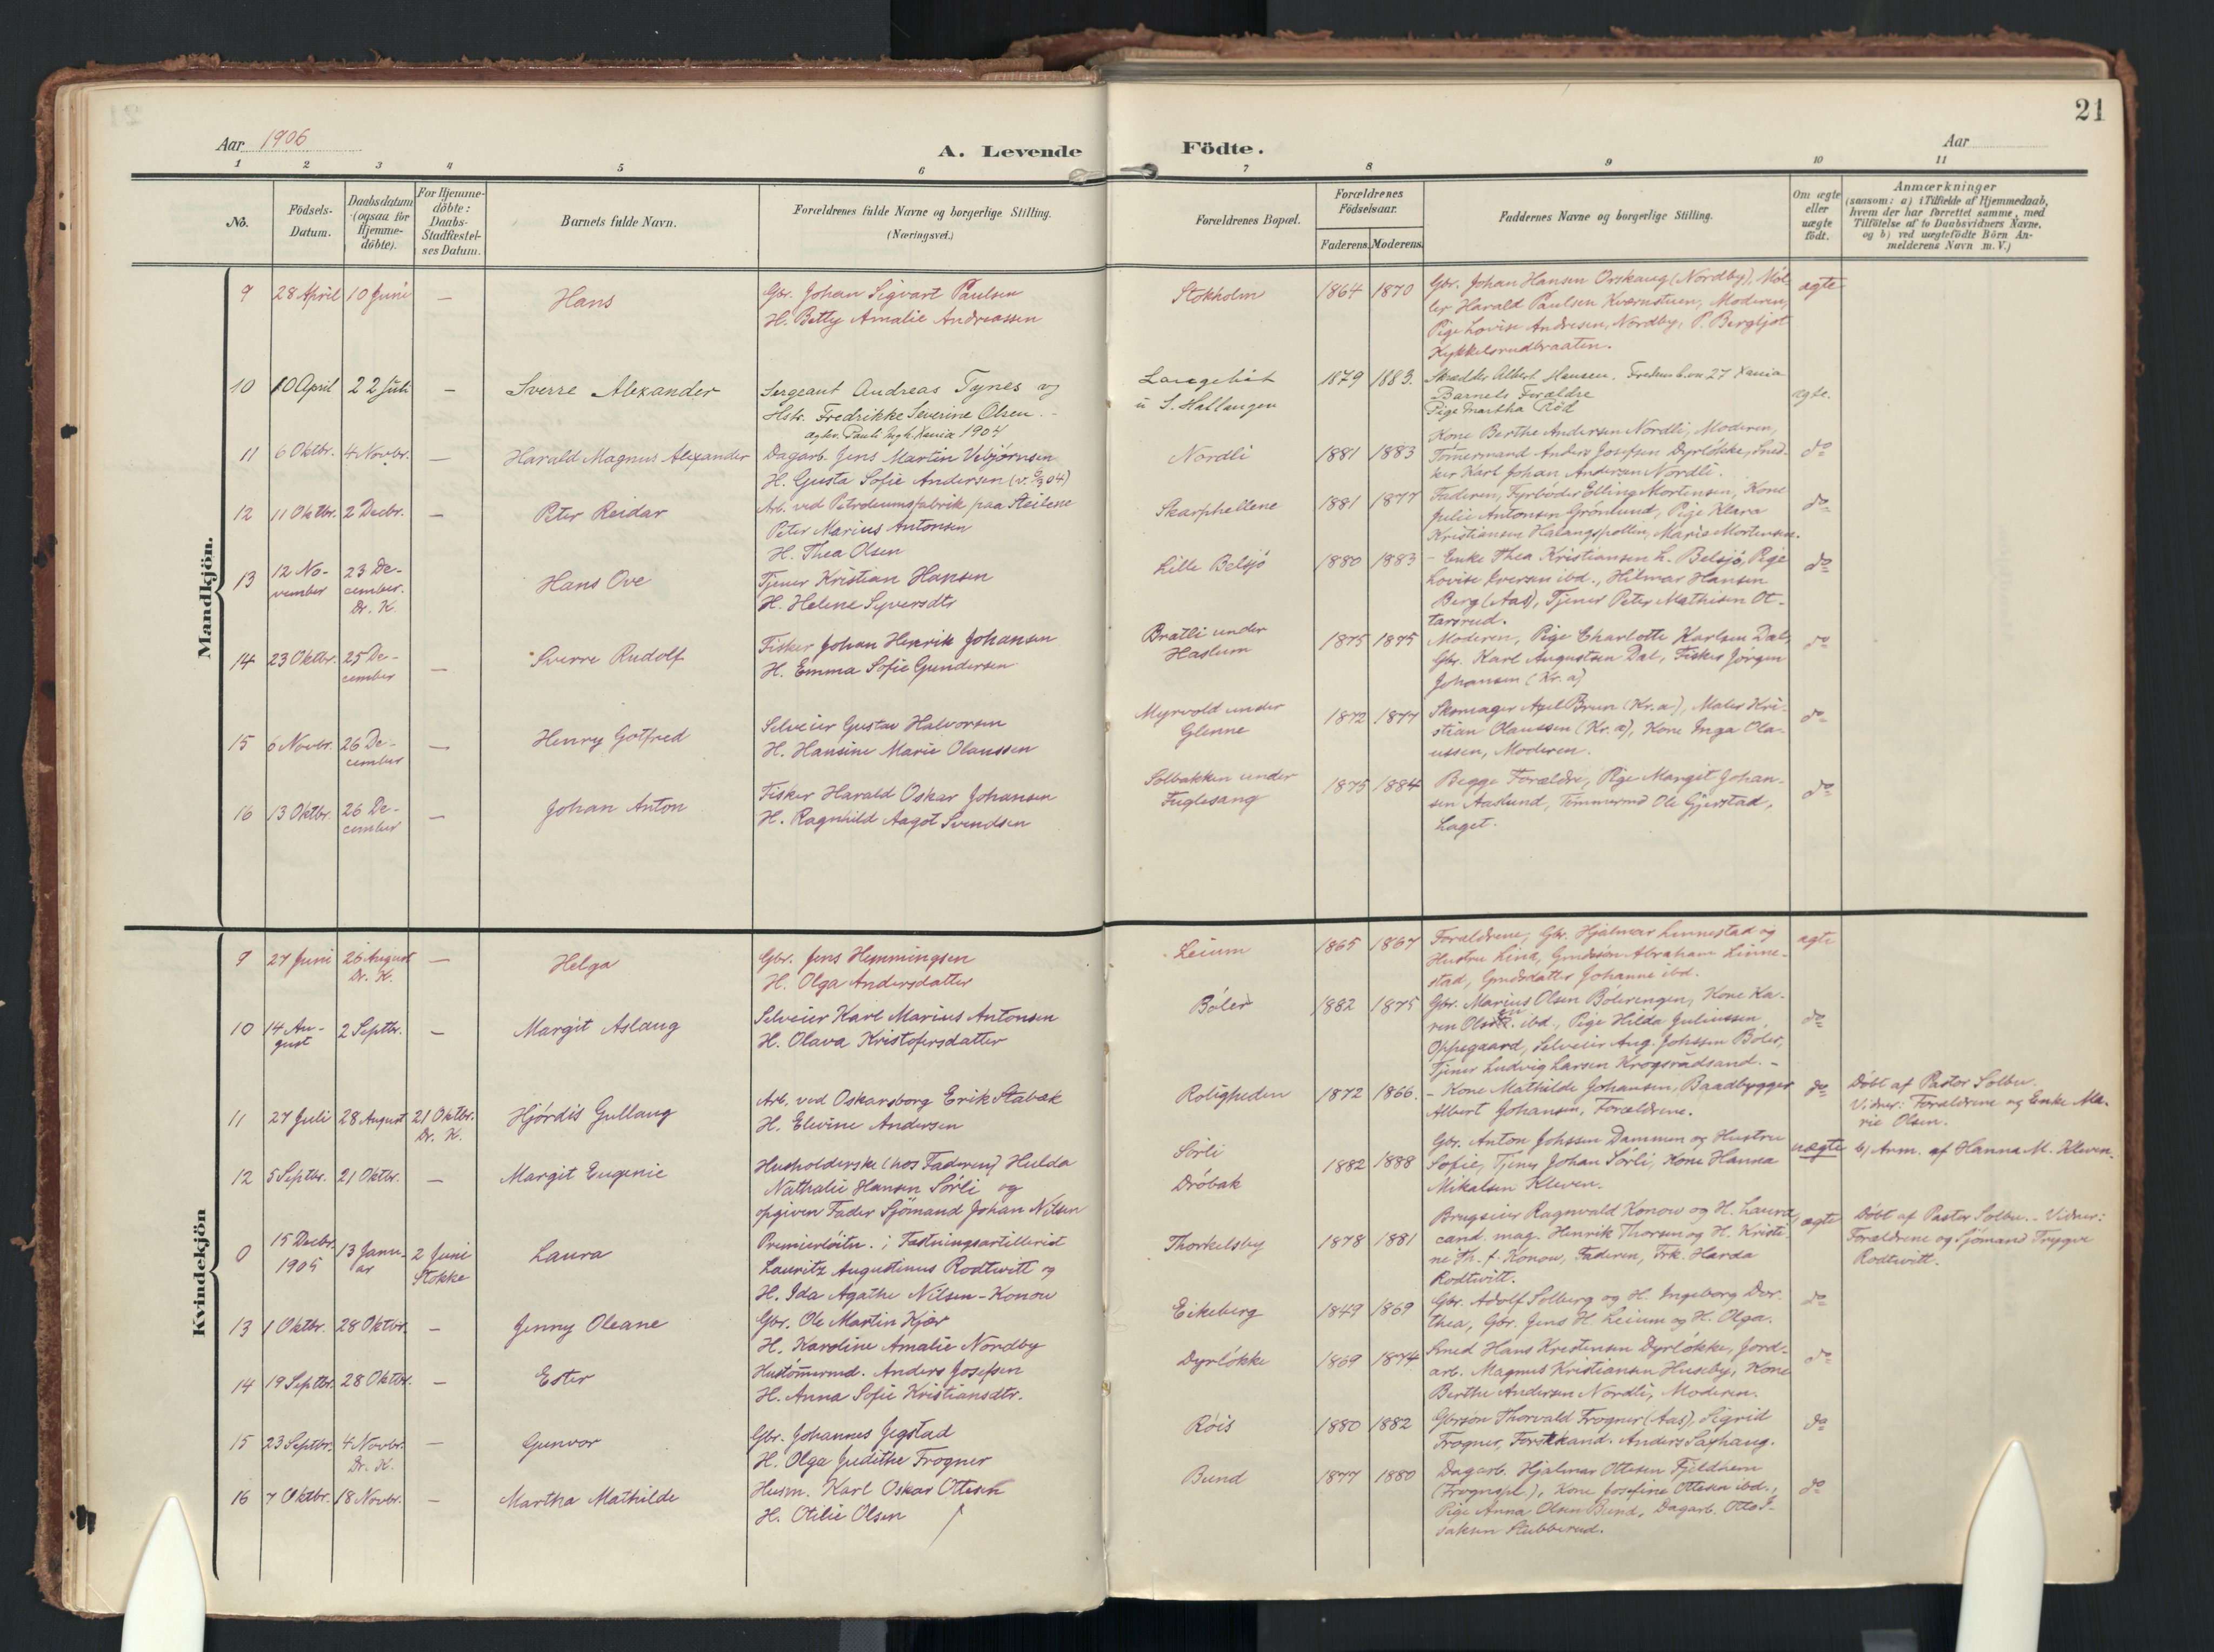 21
Aar 1906
A. Levende Födte.
Aar
1 2 3 4 5 6 7 8 9 10 11
No.
Födsels-
Datum.
Daabsdatum
(ogsaa for
Hjemme-
döbte).
For Hjemme-
döbte:
Daabs-
Stadfestel-
ses Datum.
Barnets fulde Navn.
Forældrenes fulde Navne og borgerlige Stilling.
(Næringsvei.)
Forældrenes Bopæl.
Forældrenes
Födselsaar.
Faderens. Moderens.
Faddernes Navne og borgerlige Stilling.
Om ægte
eller
uægte
födt.
Anmærkninger
(saasom: a) i Tilfælde af Hjemmedaab,
hvem der har forrettet samme, med
Tilföielse af to Daabsvidners Navne,
og b) ved uægtefödte Börn An-
melderens Navn m. V.)
Mandkjön.
9 28 April 10 Juni —
Hans
Gbr. Johan Sigvart Paulsen
H. Betty Amalie Andreassen
Stokholm
1864 1870
Gbr. Johan Hansen Orskaug (Nordby), Möl-
ler Harald Paulsen Kværnstuen, Moderen,
Pige Lovise Andresen, Nordby, P. Bergljot
Kykkelsrudbraaten.
ægte
10 10 April 22 Juli —
Sverre Alexander
Sergeant Andreas Tynes og
Hstr. Fredrikke Severine Olsen.
agtev. Pauli Mgh. Xania 1904
Langebåt
u S. Hallangen
1879 1883.
Skrædder Albert Hansen.
Barnets Forældre
Pige Martha Röd
ægte.
11 6 Oktbr. 4 Novbr. —
Harald Magnus Alexander
Dagarb. Jens Martin Vebjörnsen
H. Gusta Sofie Andersen
Nordli
1881 1883
Kone Berthe Andersen Nordli, Moderen,
Tömermand Anders Josefsen Dyrlökke, Sned-
ker Karl Johan Andersen Nordli.
do
12 11 Oktbr. 2 Decbr. —
Peter Reidar
Arb. ved Petroleumsfabrik paa Steilene
Peter Marius Antonsen
H. Thea Olsen
Skarphellene
1881 1877
Faderen, Fyrböder Elling Mortensen, Kone
Julie Antonsen Grönlund, Pige Klara
Kristiansen Halangspollen, Marie Mortensen.
do
13 12 No-
vember
23 De-
cember.
Dr. K.
Hans Ove
Tjener Kristian Hansen
H. Helene Syversdtr
Lille Belsjö
1880 1883
- Enke Thea Kristiansen L. Belsjö, Pige
Lovise Iversen ibd., Hilmar Hansen
Berg (Aas), Tjener Peter Mathisen Ot-
tarsrud.
do
14 23 Oktbr. 25 De-
cember —
Sverre Rudolf
Fisker Johan Henrik Johansen
H. Emma Sofie Gundersen
Bratli under
Haslum
1875 1875
Moderen, Pige Charlotte Karlsen Dal,
Gbr. Karl Augustsen Dal, Fisker Jörgen
Johansen (Kr.a)
do
15 6 Novbr. 26 De-
cember —
Henry Gotfred
Selveier Gustav Halvorsen
H. Hansine Marie Olaussen
Myrvold under
Glenne
1872 1877
Skomager Axel Brun (Kr.a), Maler Kri-
stian Olaussen (Kr.a), Kone Inga Ola-
ussen, Moderen.
do
16 13 Oktbr. 26 De-
cember —
Johan Anton
Fisker Harald Oskar Johansen
H. Ragnhild Aagot Svendsen
Solbakken under
Fuglesang
1875 1884
Begge Forældre, Pige Margit Johan-
sen Aaslund, Tömmermd Ole Gjerstad,
Laget.
do
Kvindekjön
9 27 Juni 26 August —
Dr. K.
Helga
Gbr. Jens Hemmingsen
H. Olga Andersdatter
Leium
1865 1867
Forældrene, Gbr. Hjalmar Linnestad og
Hustru Lina, Gmdssön Abraham Linne-
stad, Gmdsdatter Johanne ibd.
ægte
10 14 Au-
gust
2 Septbr. —
Margit Aslaug
Selveier Karl Marius Antonsen
H. Olava Kristofersdatter
Böler
1882 1875
Gbr. Marius Olsen Bölerengen, Kone Ka-
ren Olsen ibd., Pige Hilda Juliussen
Oppegaard, Selveier Aug. Johssen Böler,
Tjener Ludvig Larsen Krogsrudsand. -
do
11 27 Juli 28 August 21 Oktbr.
Dr. K.
Hjördis Gullaug
Arb. ved Oskarsborg Erik Stabæk
H. Elevine Andersen
Roligheden
1872 1866.
- Kone Mathilde Johansen, Baadbygger
Albert Johansen, Forældrene.
do
Döbt af Pastor Solbu.
Vidner: Forældrene og Enke Ma-
rie Olsen.
12 5 Septbr. 21 Oktbr. —
Margit Eugenie
Husholderske (hos Faderen) Hulda
Nathalie Hansen Sörli og
opgiven Fader Sjömand Johan Nilsen
Sörli
Dröbak
1882 1888
Gbr. Anton Johssen Dammen og Hustru
Sofie, Tjener Johan Sörli, Kone Hanna
Mikalsen Kleven.
uægte
b) Anm. af Hanna M. Kleven.
0 15 Decbr.
1905
13 Janu-
ar
2 Juni
Stokke
Laura
Premierlöitn. i Fæstningsartilleriet
Lauritz Augustinus Rodtwitt og
H. Ida Agathe Nilsen-Konow
Thorkelsby
1878 1881
Brugseier Ragnvald Konow og H. Laura,
cand. mag. Henrik Thorsen og H. Kristi-
ne Th. f. Konow, Faderen, Frk. Harda
Rodtwitt.
ægte
Döbt af Pastor Solbu. - Vidner:
Forældrene og Sjömand Trygve
Rodtwitt.
13 1 Oktbr. 28 Oktbr. —
Jenny Oleane
Gbr. Ole Martin Kjær
H. Karoline Amalie Nordby
Eikeberg
1849 1869
Gbr. Adolf Solberg og H. Ingeborg Dor-
thea, Gbr. Jens H. Leium og H. Olga.
do
14 19 Septbr. 28 Oktbr. —
Ester
Hustömermd. Anders Josefsen
H. Anna Sofie Kristiansdtr.
Dyrlökke
1869 1874
Smed Hans Kristensen Dyrlökke, Jord-
arb. Magnus Kristiansen Huseby, Kone
Berthe Andersen Nordli, Moderen.
do
15 23 Septbr. 4 Novbr. —
Dr. K.
Gunvor
Gbr. Johannes Jegstad
H. Olga Judithe Frogner
Röis
1880 1882
Gbrsön Thorvald Frogner (Aas), Sigrid
Frogner, Forstkand. Anders Saxhaug.
do
16 7 Oktbr. 18 Novbr. —
Martha Mathilde
Husm. Karl Oskar Ottesen
H. Otilie Olsen
Bund
1877 1880
Dagarb. Hjalmar Ottesen Fjeldhem
(Frognspl.), Kone Josefine Ottesen ibd.,
Pige Anna Olsen Bund, Dagarb. Otto I-
saksen Stubberud.
do